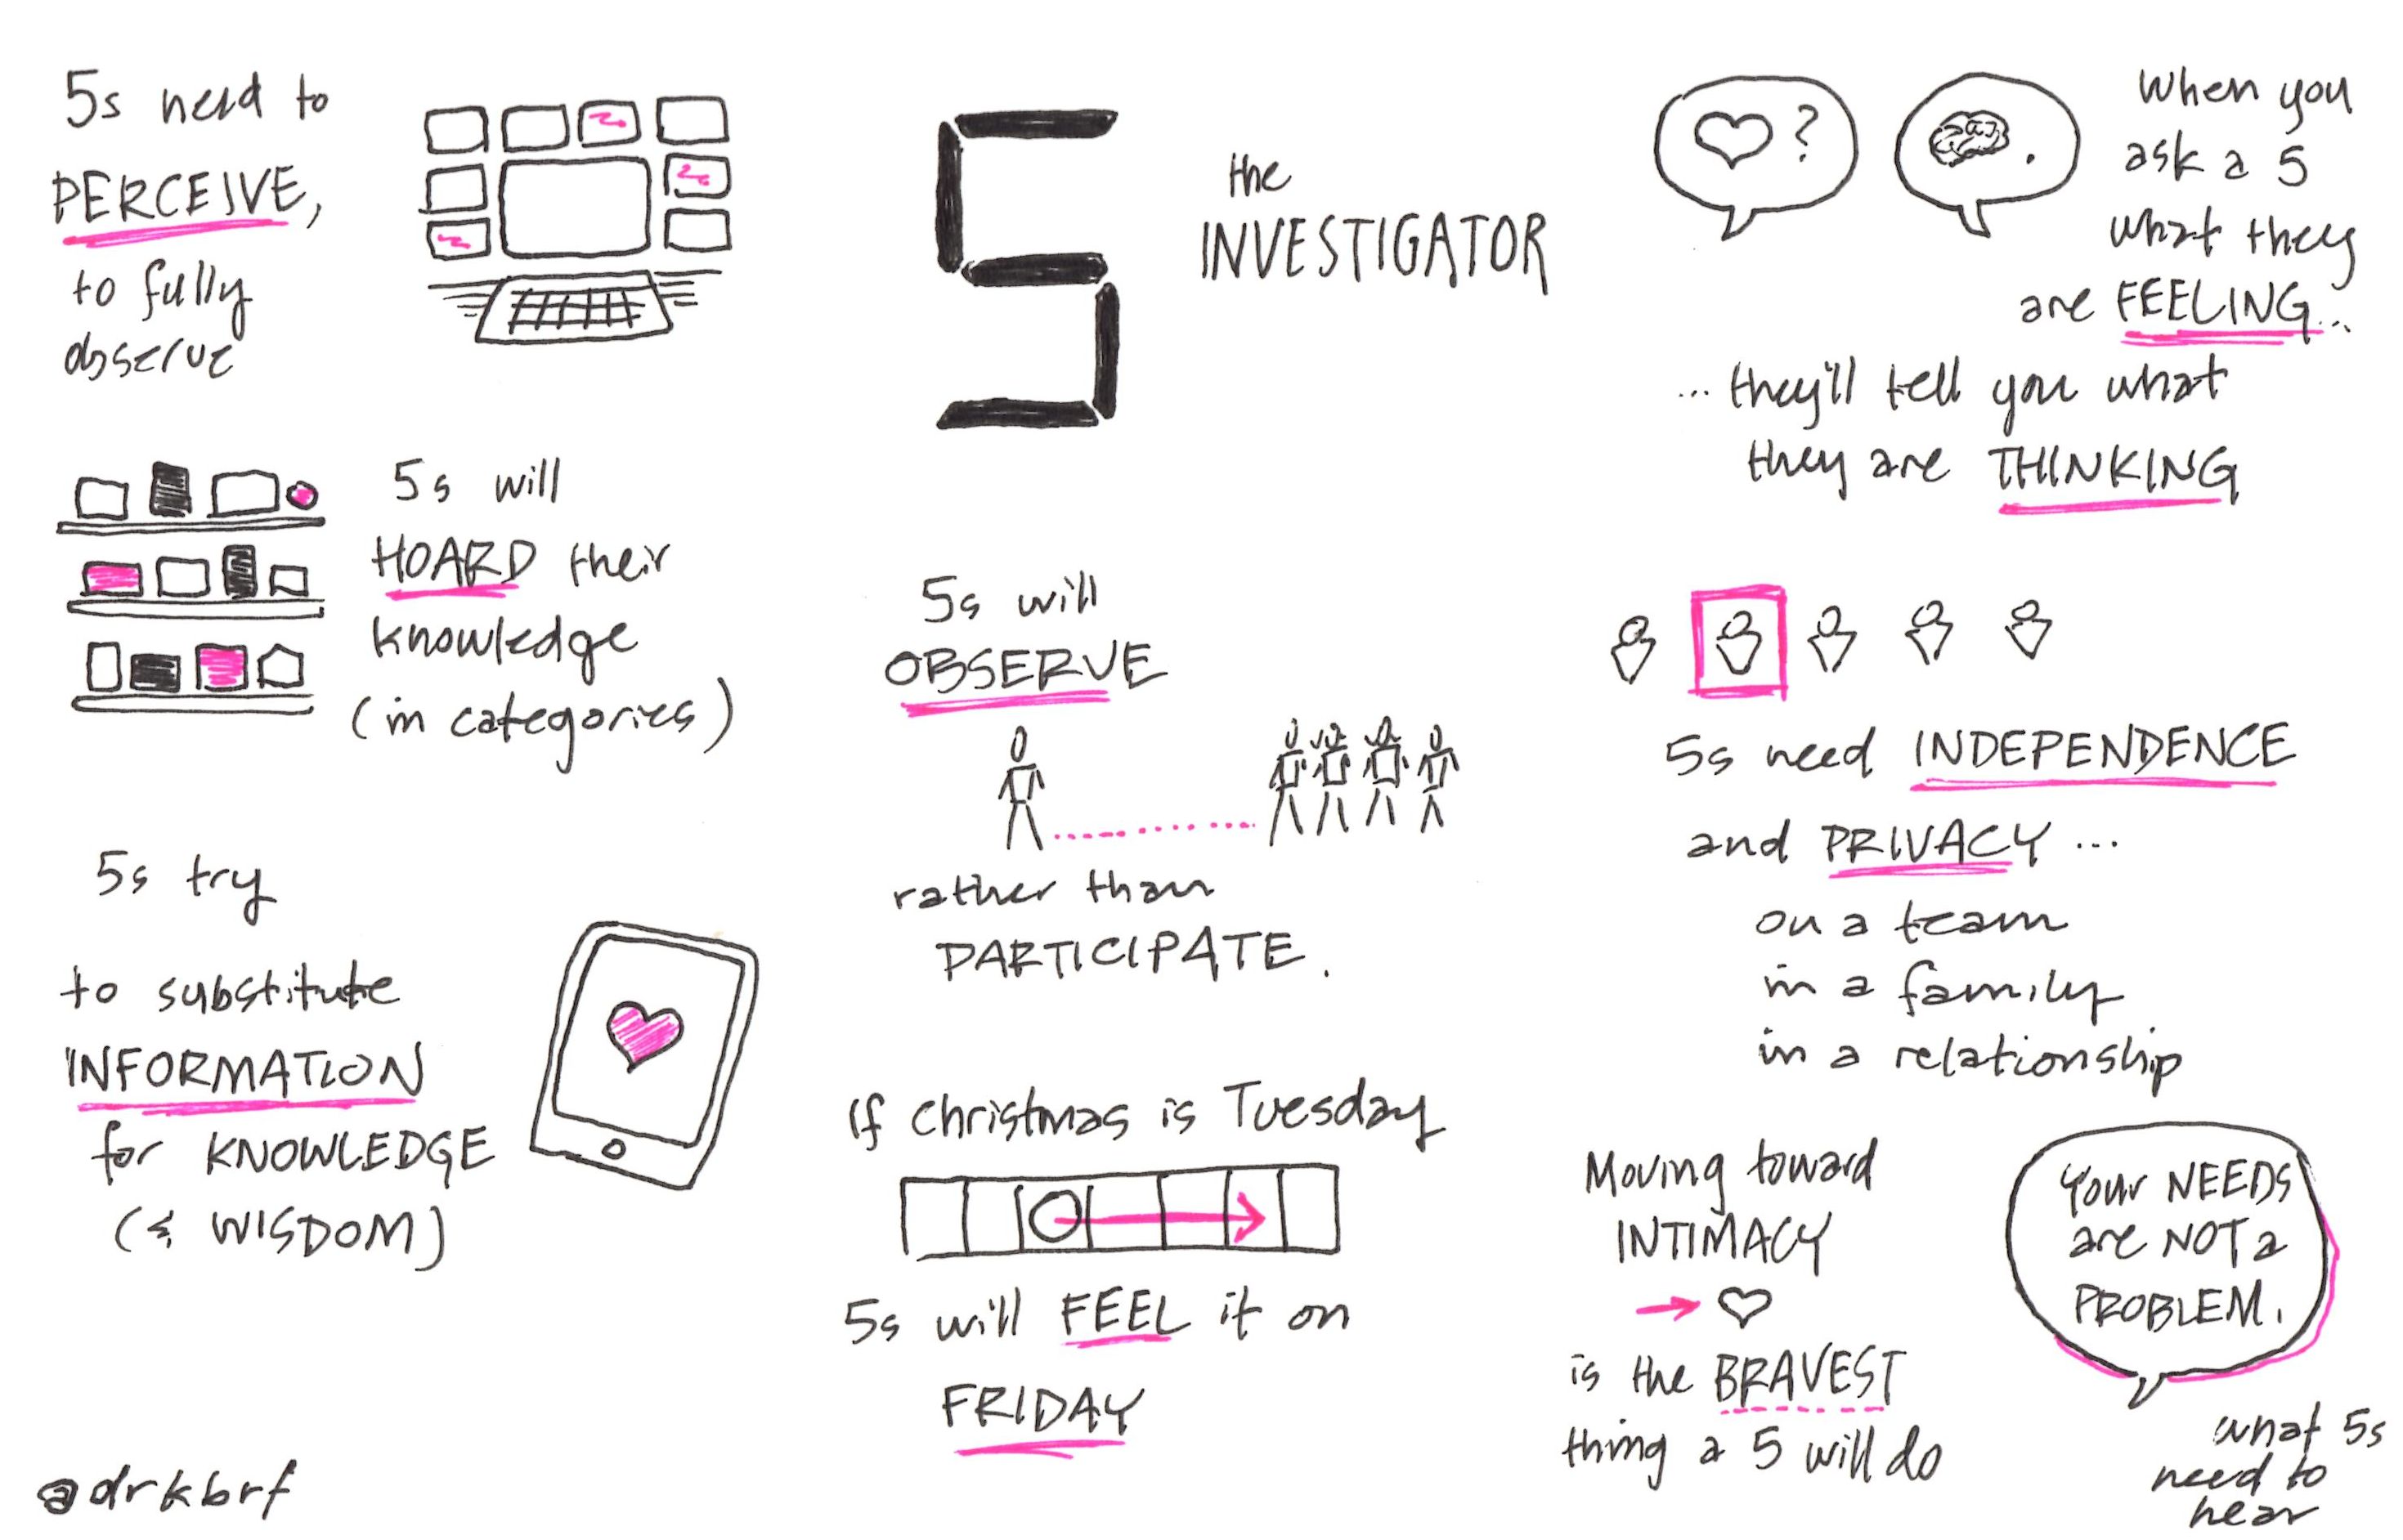 5s need to
PERCEIVE,
to fully
observe
5s will
HOARD their
knowledge
(in categories)
5s try
to substitute
INFORMATION
for KNOWLEDGE
(& WISDOM)
@drkbrf
5
the
INVESTIGATOR
5s will
OBSERVE
rather than
PARTICIPATE.
If Christmas is Tuesday
5s will FEEL it on
FRIDAY
?
.
When you
ask a 5
what they
are FEELING...
... they'll tell you what
they are THINKING
5s need INDEPENDENCE
and PRIVACY ...
on a team
in a family
in a relationship
Moving toward
INTIMACY
is the BRAVEST
thing a 5 will do
Your NEEDS
are NOT a
PROBLEM.
what 5s
need to
hear